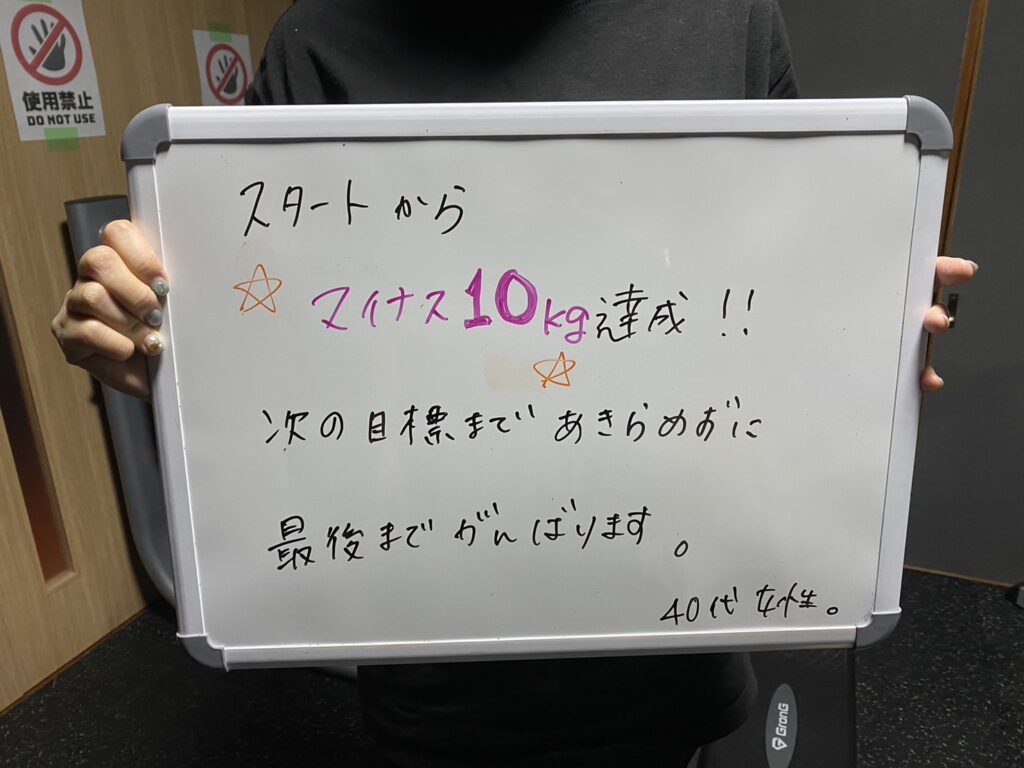 使用禁止
DO NOT USE
スタートから
☆ マイナス10kg達成!!
☆
次の目標まであきらめずに
最後までがんばります。
40代 女性。
GronG